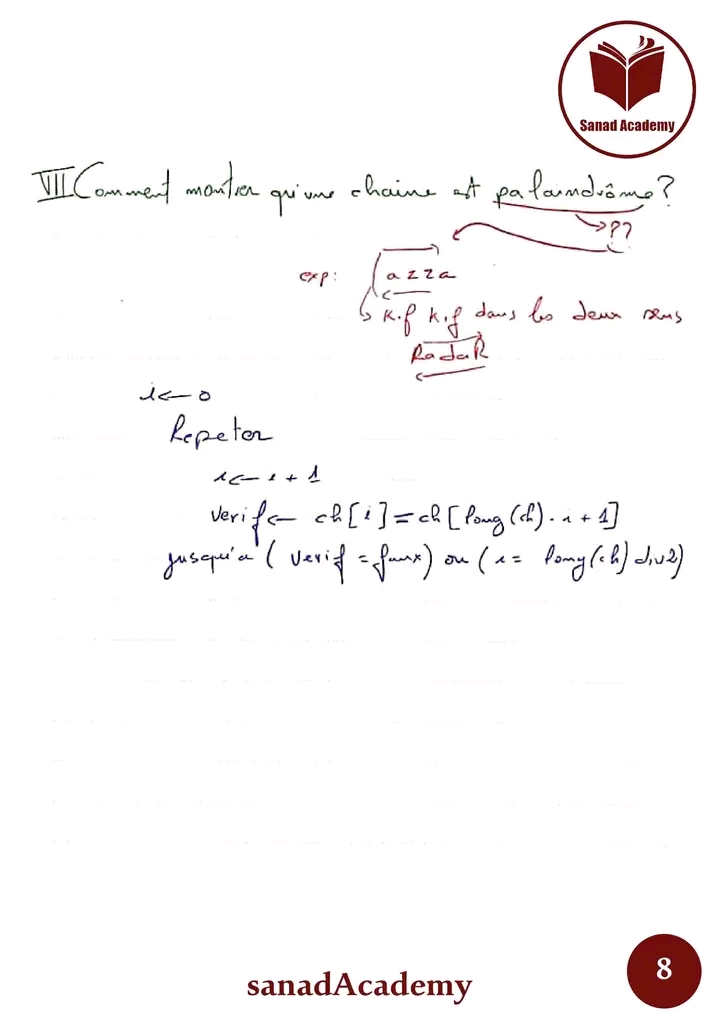 Sanad Academy
VII Comment montrer qu'une chaine est palaindrôme?
??
exp: azza
k.f k.f dans les deux sens
RadaR
i ← 0
Repeter
i ← i + 1
Verif ← ch[i] = ch[long(ch) - i + 1]
jusqu'a (Verif = faux) ou (i = long(ch) div2)
sanadAcademy
8